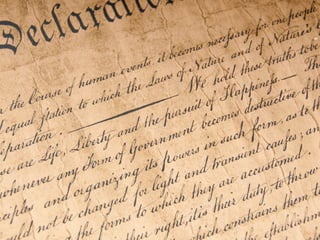 Declaration
n the Course of human events, it becomes necessary for one people
equal station to which the Laws of Nature and of Nature's
separation. — We hold these truths to be
se are Life, Liberty and the pursuit of Happiness. — Th
whenever any Form of Government becomes destructive of th
ciples and organizing its powers in such form, as to th
uld not be changed for light and transient causes; an
the forms to which they are accustomed.
their right, it is their duty, to throw
which constrains them t
establishme